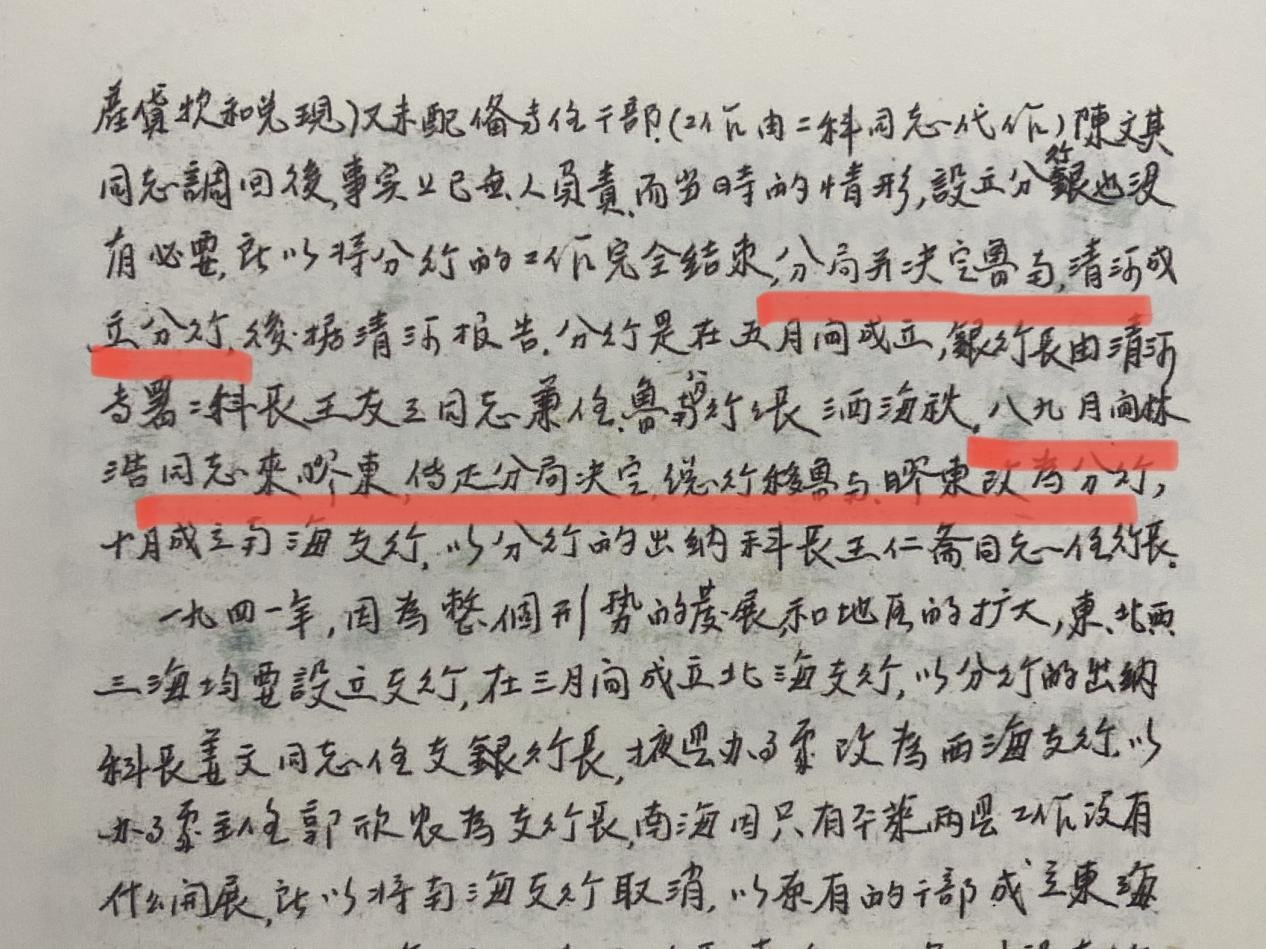 產貸款和兌現)又未配備专任干部.(工作由二科同志代作)陳文其
同志調回後,事实上已無人負責,而当時的情形,設立分銀行也没
有必要,所以将分行的工作完全結束,分局并决定魯南,清河成
立分行,後据清河报告,分行是在五月间成立,銀行長由清河
专署二科長王友三同志兼任,魯南分行行長洒海秋,八九月间林
浩同志來膠東,传达分局决定,總行移魯南,膠東改為分行,
十月成立南海支行,以分行的出纳科長王仁斋同志任行長.
一九四一年,因為整個形势的發展,和地区的扩大,東、北西
三海均要設立支行,在三月间成立北海支行,以分行的出纳
科長姜文同志任支銀行長,掖县办事處改為西海支行,以
办事處主任郭欣农為支行長,南海因只有平萊两县工作没有
什么闹展,所以将南海支行取消,以原有的干部成立東海